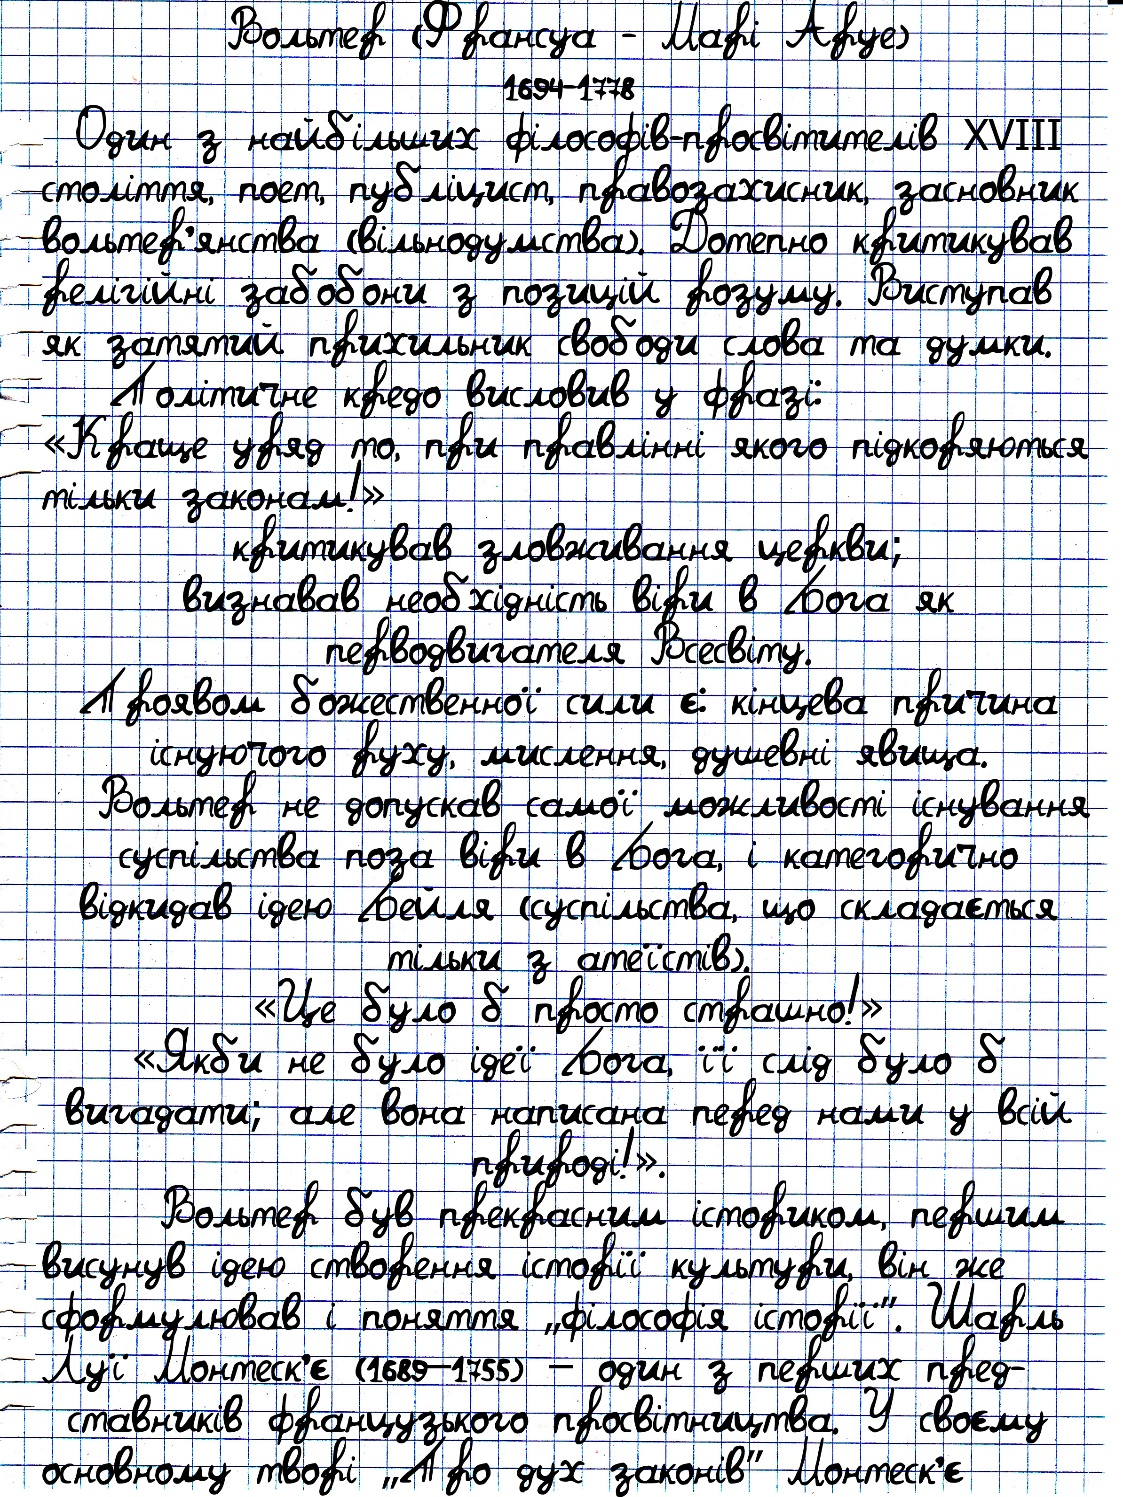 Вольтер (Франсуа - Марі Аруе)
1694-1778
Один з найбільших філософів-просвітителів XVIII
століття, поет, публіцист, правозахисник, засновник
вольтер'янства (вільнодумства). Дотепно критикував
релігійні забобони з позицій розуму. Виступав
як затятий прихильник свободи слова та думки.
Політичне кредо висловив у фразі:
«Краще уряд то, при правлінні якого підкоряються
тільки законам!»
критикував зловживання церкви;
визнавав необхідність віри в Бога як
перводвигателя Всесвіту.
Проявом божественної сили є: кінцева причина
існуючого руху, мислення, душевні явища.
Вольтер не допускав самої можливості існування
суспільства поза віри в Бога, і категорично
відкидав ідею Бейля (суспільства, що складається
тільки з атеїстів).
«Це було б просто страшно!»
«Якби не було ідеї Бога, її слід було б
вигадати; але вона написана перед нами у всій
природі!».
Вольтер був прекрасним істориком, першим
висунув ідею створення історії культури, він же
сформулював і поняття „філософія історії". Шарль
Луї Монтеск'є (1689-1755) – один з перших пред-
ставників французького просвітництва. У своєму
основному творі „Про дух законів" Монтеск'є